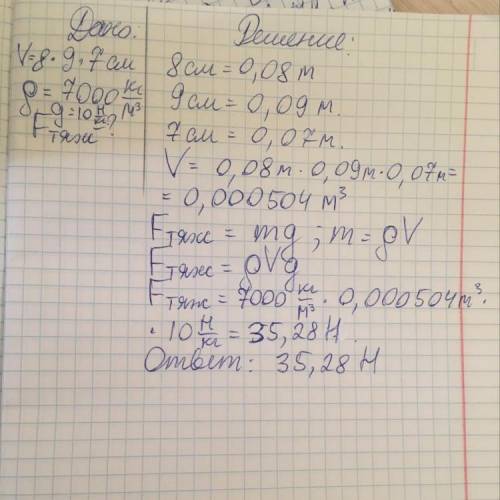 Дано:
V=8·9·7см
ρ=7000 кг/м³
g=10 Н/кг
Fтяж?
Решение:
8см=0,08м
9см=0,09м.
7см=0,07м.
V= 0,08м·0,09м·0,07м=
=0,000504м³
Fтяж = mg ; m=ρV
Fтяж=ρVg
Fтяж=7000 кг/м³ · 0,000504м³·
·10 Н/кг = 35,28Н.
Ответ: 35,28 Н